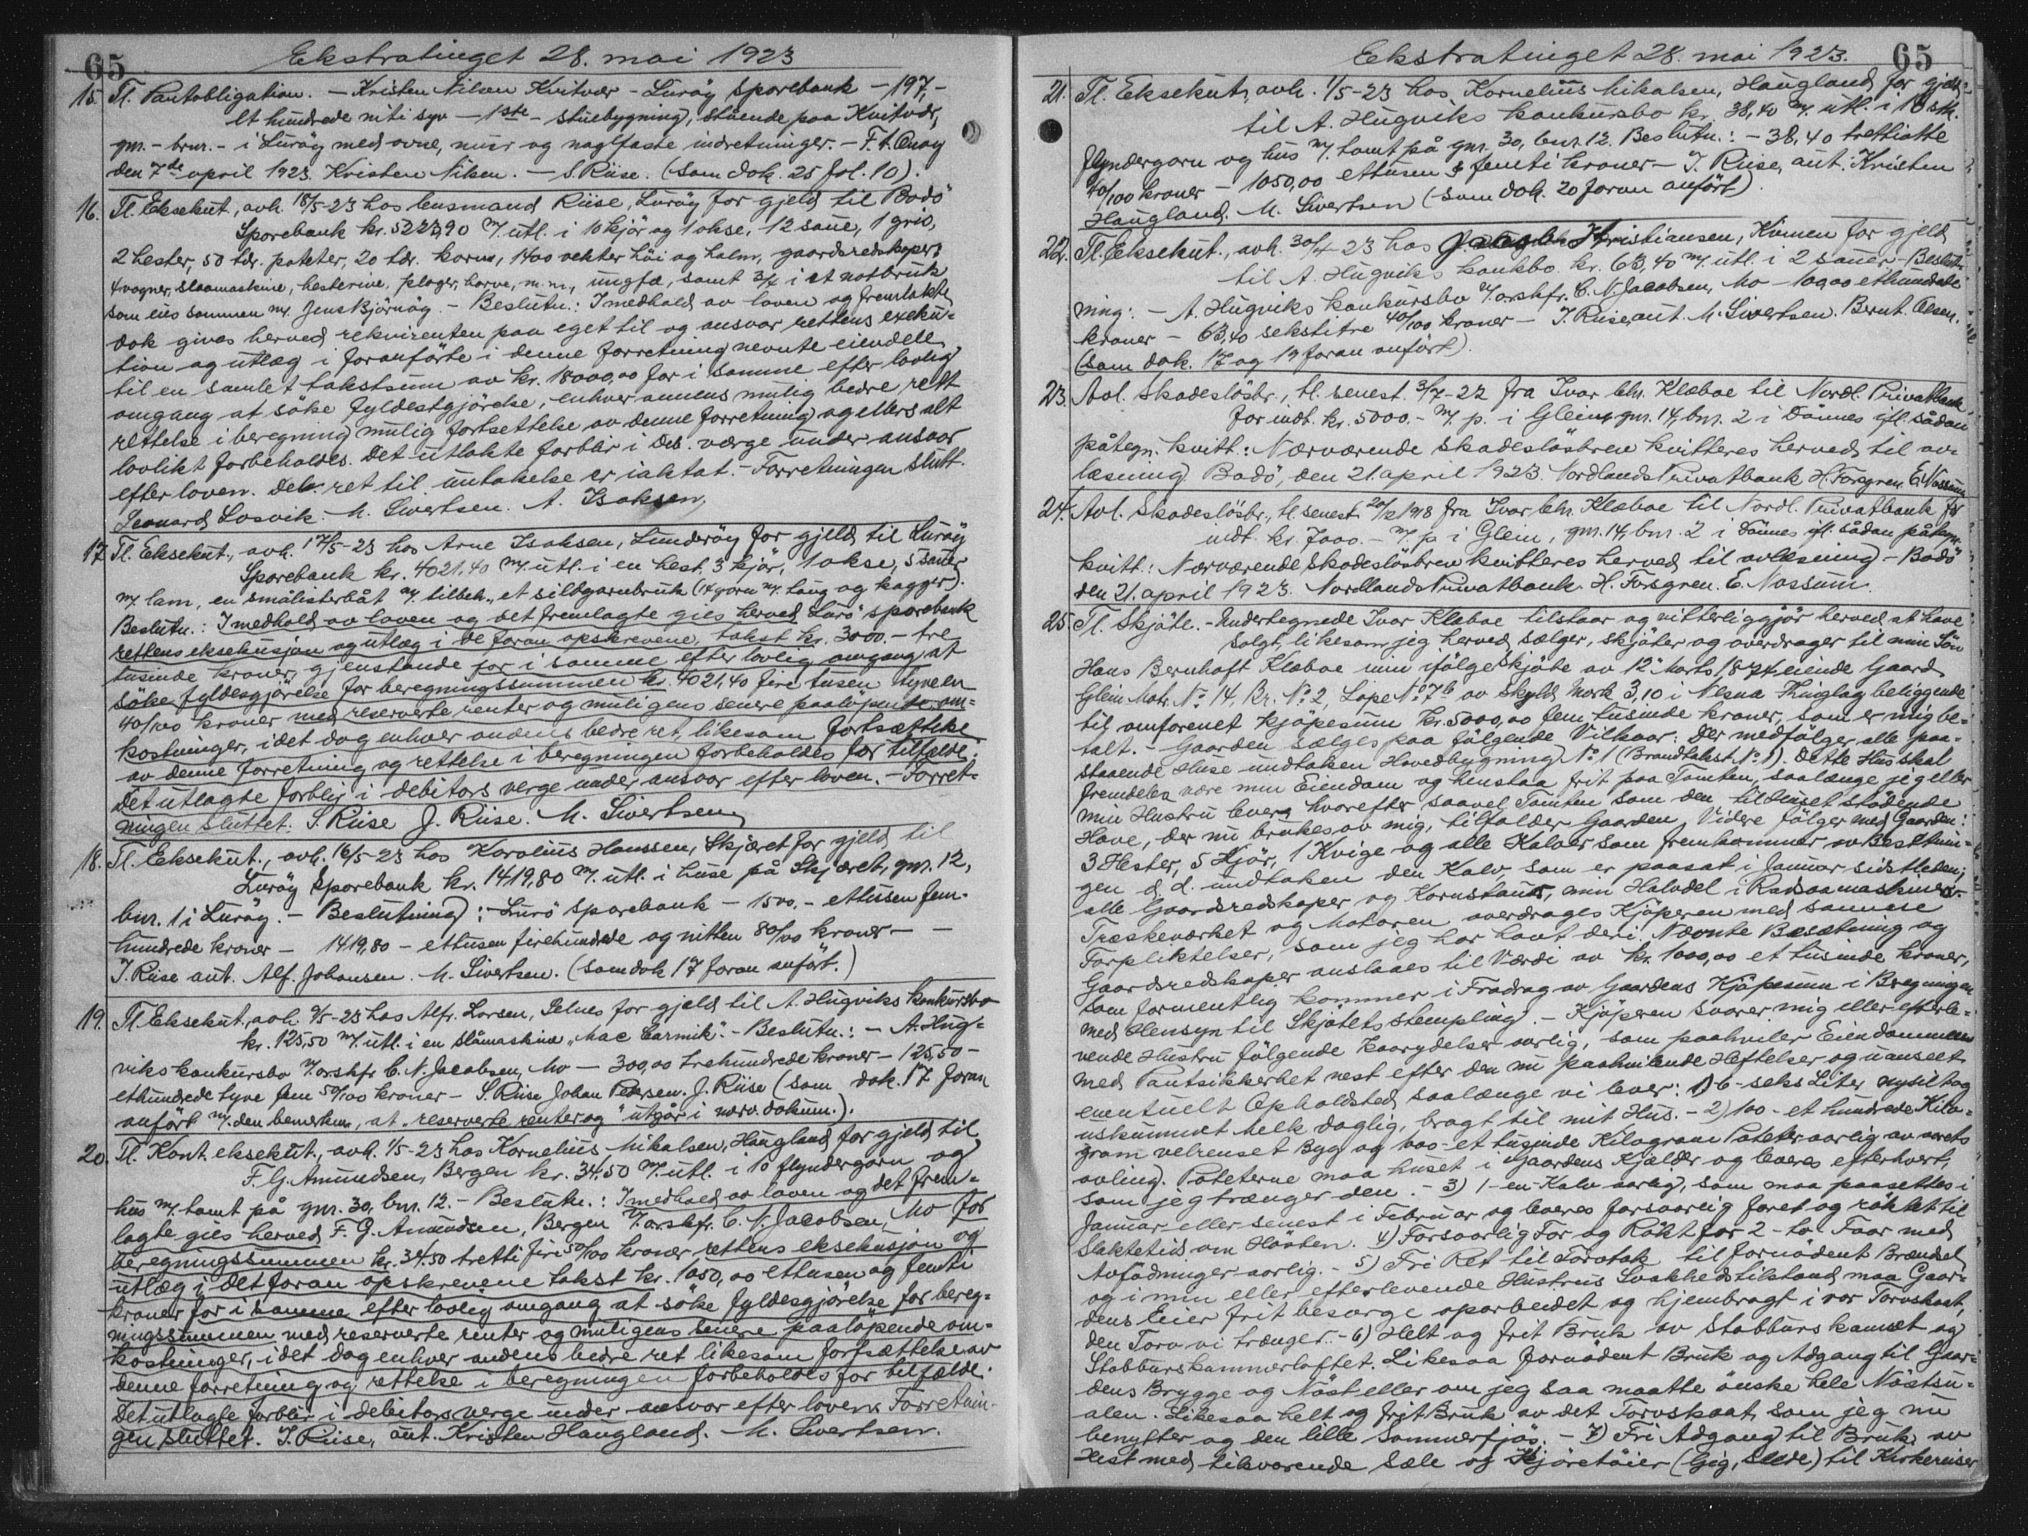 65
Ekstratinget 28. mai 1923
15. Tl. Pantobligation. – Kristen Nilsen Kvitvær – Lurøy Sparebank – 197,–
et hundrede nitti syv – 1ste – stuebygning, stående paa Kvitvær,
gnr. – brnr. – i Lurøy med ovne, murr og naglfaste indretninger. – F. t. Onøy
den 7de april 1923. Kristen Nilsen. – S. Riise. (Som dok. 25 fol. 10).
16. Tl. Eksekut., avh. 18/5-23 hos lensmand Riise, Lurøy for gjeld til Bodö
Sparebank kr. 5223,90 m/ utl. i 10 kjör og 1 okse, 12 saue, 1 gris,
2 hester, 50 tdr. poteter, 20 tdr. korn, 1400 vekter höi og halm, gaardsredskaper,
4 vogner, slaamaskine, hesterive, ploger, harve, m.m., ungfæ, samt 3/4 i et notbruk
som eies sammen m/ Jens Bjørnøy. – Beslutn.: I medhold av loven og fremlakte
dok gives herved rekvirenten paa eget til og ansvar rettens exeku-
tion og utlæg i foranförte i denne forretning nevnte eiendele
til en samlet takstsum av kr. 18000,00 for i samme efter lovlig
omgang at söke fyldestgjörelse, enhver annens mulig bedre rett
rettelse i beregning mulig fortsettelse av denne forretning og ellers alt
lovlikt forbeholdes. Det utlakte forblir i Deb. værge under ansvar
efter loven. Deb. ret til undtakelse er iaktat. – Forretningen slutt.
Leonard Losvik. M. Sivertsen. A. Isaksen,
17. Tl. Eksekut., avh. 17/5-23 hos Arne Isaksen, Lunderøy for gjeld til Lurøy
Sparebank kr. 4021.40 m/ utl. i en hest, 3 kjör, 1 okse, 5 sauer
m/ lam, en smålisterbåt m/ tilbeh., et sildgarnbruk (14 garn m/ taug og kagger).
Beslutn.: I medhold av loven og det fremlagte gies herved Lurö sparebank
rettens eksekusjon og utlæg i de foran opskrevne, takst kr. 3000.– tre
tusinde kroner, gjenstande for i samme efter lovlig omgang at
söke fyldesgjörelse for beregningssummen kr. 4021,40 fire tusen tyve en
40/100 kroner med reserverte renter og muligens senere paalöpende om-
kostninger, idet dog enhver andens bedre ret likesom fortsættelse
av denne forretning og rettelse i beregningen forbeholdes for tilfælde.
Det utlagte forblir i debitors verge under ansvar efter loven. – Forret-
ningen sluttet. S. Riise J. Riise. M. Sivertsen,
18. Tl. Eksekut., avh. 16/5-23 hos Karolius Hanssen, Skjæret for gjeld til
Lurøy Sparebank kr. 1419,80 m/ utl. i huse på Skjæret, gnr. 12,
bnr. 1 i Lurøy. – Beslutning: Lurö sparebank – 1500.– ettusen fem-
hundrede kroner – 1419,80 – ettusen firehundrede og nitten 80/100 kroner –
J. Riise aut. Alf. Johansen. M. Sivertsen. (Som dok 17 foran anfört.)
19. Tl. Eksekut, avh. 9/5-23 hos Alfr. Larsen, Selnes for gjeld til A. Hugviks konkursbo
kr. 125,50 m/ utl. i en slåmaskine „Mac Carmik". – Beslutn.: – A. Hug-
viks konkursbo v/ orshfr. C. N. Jacobsen, Mo – 300,00 trehundrede kroner – 125,50 –
ethundrede tyve fem 50/100 kroner – S. Riise Johan Petersen. J. Riise (Som dok. 17 foran
anfört m/ den bemerkn., at „reserverte renter og" utgår i nærv. dokum.).
20. Tl. Kont. eksekut., avh. 1/5-23 hos Kornelius Mikalsen, Haugland for gjeld til
F. G. Amundsen, Bergen kr. 34,50 m/ utl. i 10 flyndergarn og
hus m/ tomt på gnr. 30, bnr. 12. – Beslutn.: I medhold av loven og det frem-
lagte gies herved F. G. Amundsen, Bergen v/ orshfr. C. N. Jacobsen, Mo for
beregningssummen kr. 34.50 tretti firi 50/100 kroner rettens eksekusjon og
utlæg i det foran opskrevne takst kr. 1050,00 ettusen og femti
kroner for i samme efter lovlig omgang at söke fyldesgjörelse for bereg-
ningssummen med reserverte renter og muligens senere paalöpende om-
kostninger, idet dog enhver andens bedre ret likesom fortsættelse av
denne forretning og rettelse i beregningen forbeholdes for tilfælde.
Det utlagte forblir i debitors verge under ansvar efter loven. Forretnin-
gen sluttet. J. Riise, aut. Kristen Haugland. M. Sivertsen.
Ekstratinget 28. mai 1923. 65
21. Tl. Eksekut, avh. 1/5-23 hos Kornelius Mikalsen, Haugland for gjeld
til A. Hugviks konkursbo kr. 38,40 m/ utl. i 10 stk.
flyndergarn og hus m/ tomt på gnr. 30, bnr. 12. Beslutn.: – 38,40 trettiotte
40/100 kroner – 1050,00 ettusen & femti kroner – J. Riise, aut. Kristen
Haugland. M. Sivertsen (Som dok. 20 foran anfört).
22. Tl. Eksekut., avh. 30/4-23 hos Kristiansen, Kvinen for gjeld
til A. Hugviks konkbo. kr. 63,40 m/ utl. i 2 sauer – Beslut-
ning: – A. Hugviks konkursbo v/ orshfr. C. N. Jacobsen, Mo – 100,00 ethundrede
kroner – 63,40 sekstitre 40/100 kroner – J. Riise, aut. M. Sivertsen. Bernt Olsen.
(Som dok. 17 og 19 foran anfört).
23. Avl. Skadeslösbr., tl. senest 3/7-22 fra Ivar Chr. Klæboe til Nordl. Privatbank
for indt. kr. 5000.– m/ p. i Glein, gnr. 14, bnr. 2 i Dønnes ifl. sådan
påtegn. kvitt.: Nærværende skadeslösbrev kvitteres herved til av-
læsning. Bodö, den 21. april 1923. Nordlands Privatbank H. Forsgren. E. Nossum
24. Avl. Skadeslösbr., tl. senest 20/12 1918 fra Ivar Chr. Klæboe til Nordl. Privatbank for
indt. kr. 7000.– m/ p. i Glein, gnr. 14, bnr. 2 i Dönnes ifl. sådan påtegn.
kvitt.: Nærværende skadeslösbrev kvitteres herved til avlæsning – Bodö
den 21. april 1923. Nordlands Privatbank. H. Forsgren. E. Nossum.
25. Tl. Skjöte. – Undertegnede Ivar Klæboe tilstaar og vitterliggjör herved at have
solgt, likesom jeg herved sælger, skjöter og overdrager til min Sön
Hans Bernhoft Klæboe min ifölge Skjöte av 12 Marts 1874 eiende Gaard
Glein Matr. No 14, Br. No 2, Löpe No 7b av Skyld Mark 3,10 i Nesna Thinglag beliggende
til omforenet Kjöpesum Kr. 5000,00 fem tusinde kroner, som er mig be-
talt. – Gaarden sælges paa fölgende Vilkaar: Der medfölger alle paa-
staaende Huse undtaken Hovedbygning No 1 (Brandtakst No 1). Dette Hus skal
fremdeles være min Eiendom og henstaa frit paa Tomten, saalænge jeg eller
min Hustru lever, hvorefter saavel Tomten som den til Huset stödende
Have, der nu brukes av mig, tilfalder Gaarden. Videre fölger med Gaarden:
3 Hester, 5 Kjör, 1 Kvige og alle Kalver som fremkommer av Besætnin-
gen d. d. undtaken den Kalv, som er paasat i Januar sidstleden,
alle Gaardsredskaper og Kornstaur, min Halvdel i Radsaamaskinen,
Træskeværket og Motoren overdrages Kjöperen med samme
Forpliktelser, som jeg har havt deri. Nævnte Besætning og
Gaardsredskaper anslaaes til Værdi av kr. 1000,00 et tusinde kroner,
som formentlig kommer i Fradrag av Gaardens Kjöpesum i Beregningen
med Hensyn til Skjötets stempling. – Kjöperen svarer mig eller efterle-
vende Hustru fölgende Kaarydelser aarlig, som paahviler Eiendommen
med Pantsikkerhet nest efter den nu paahvilende Heftelser og uanseet
eventuelt Opholdsted saalænge vi lever: 1) 6 – seks Liter nysiet og
uskummet Melk daglig, bragt til mit Hus. – 2) 100 – et hundrede Kilo-
gram velrenset Byg og 1000 – et tusinde Kilogram Poteter aarlig av aarets
avling. Poteterne maa huset i Gaardens Kjælder og leveres efterhvert,
som jeg trænger den. – 3) 1 – en Kalv aarlig, som maa paasettes i
Januar eller senest i Februar og leveres forsvarlig foret og røktet til
Slaktetid om Hösten. 4) Forsvarlig For og Røkt for 2 – to Faar med
Avfödninger aarlig. – 5) Fri Ret til Torvtak til fornödent Brændsel
og i min eller efterlevende Hustrus Svakhedstilstand maa Gaar-
dens Eier frit besørge oparbeidet og hjembragt i vor Torvskaat,
den Torv vi trænger. – 6) Helt og frit Bruk av Stabburskamret og
Stabburskammerloftet. Likesaa fornødent Bruk og Adgang til Gaar-
dens Brygge og Nöst eller om jeg saa maatte önske hele Nöstsu-
alen. Likesaa helt og frit Bruk av det Torvskaat, som jeg nu
benytter og den lille Sommerfjös. – 7) Fri Adgang til Bruk av
Hest med tilsvarende Sæle og Kjöretöier (Gig, Slede) til Kirkereiser